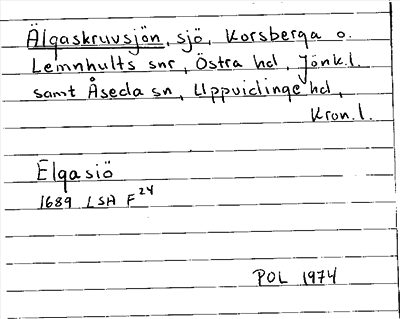 Älgaskruvsjön, sjö, Korsberga o.
Lemnhults snr, Östra hd, Jönk.l.
samt Åseda sn, Uppvidinge hd,
Kron.l.
Elgasiö
1689 LSA F24
POL 1974